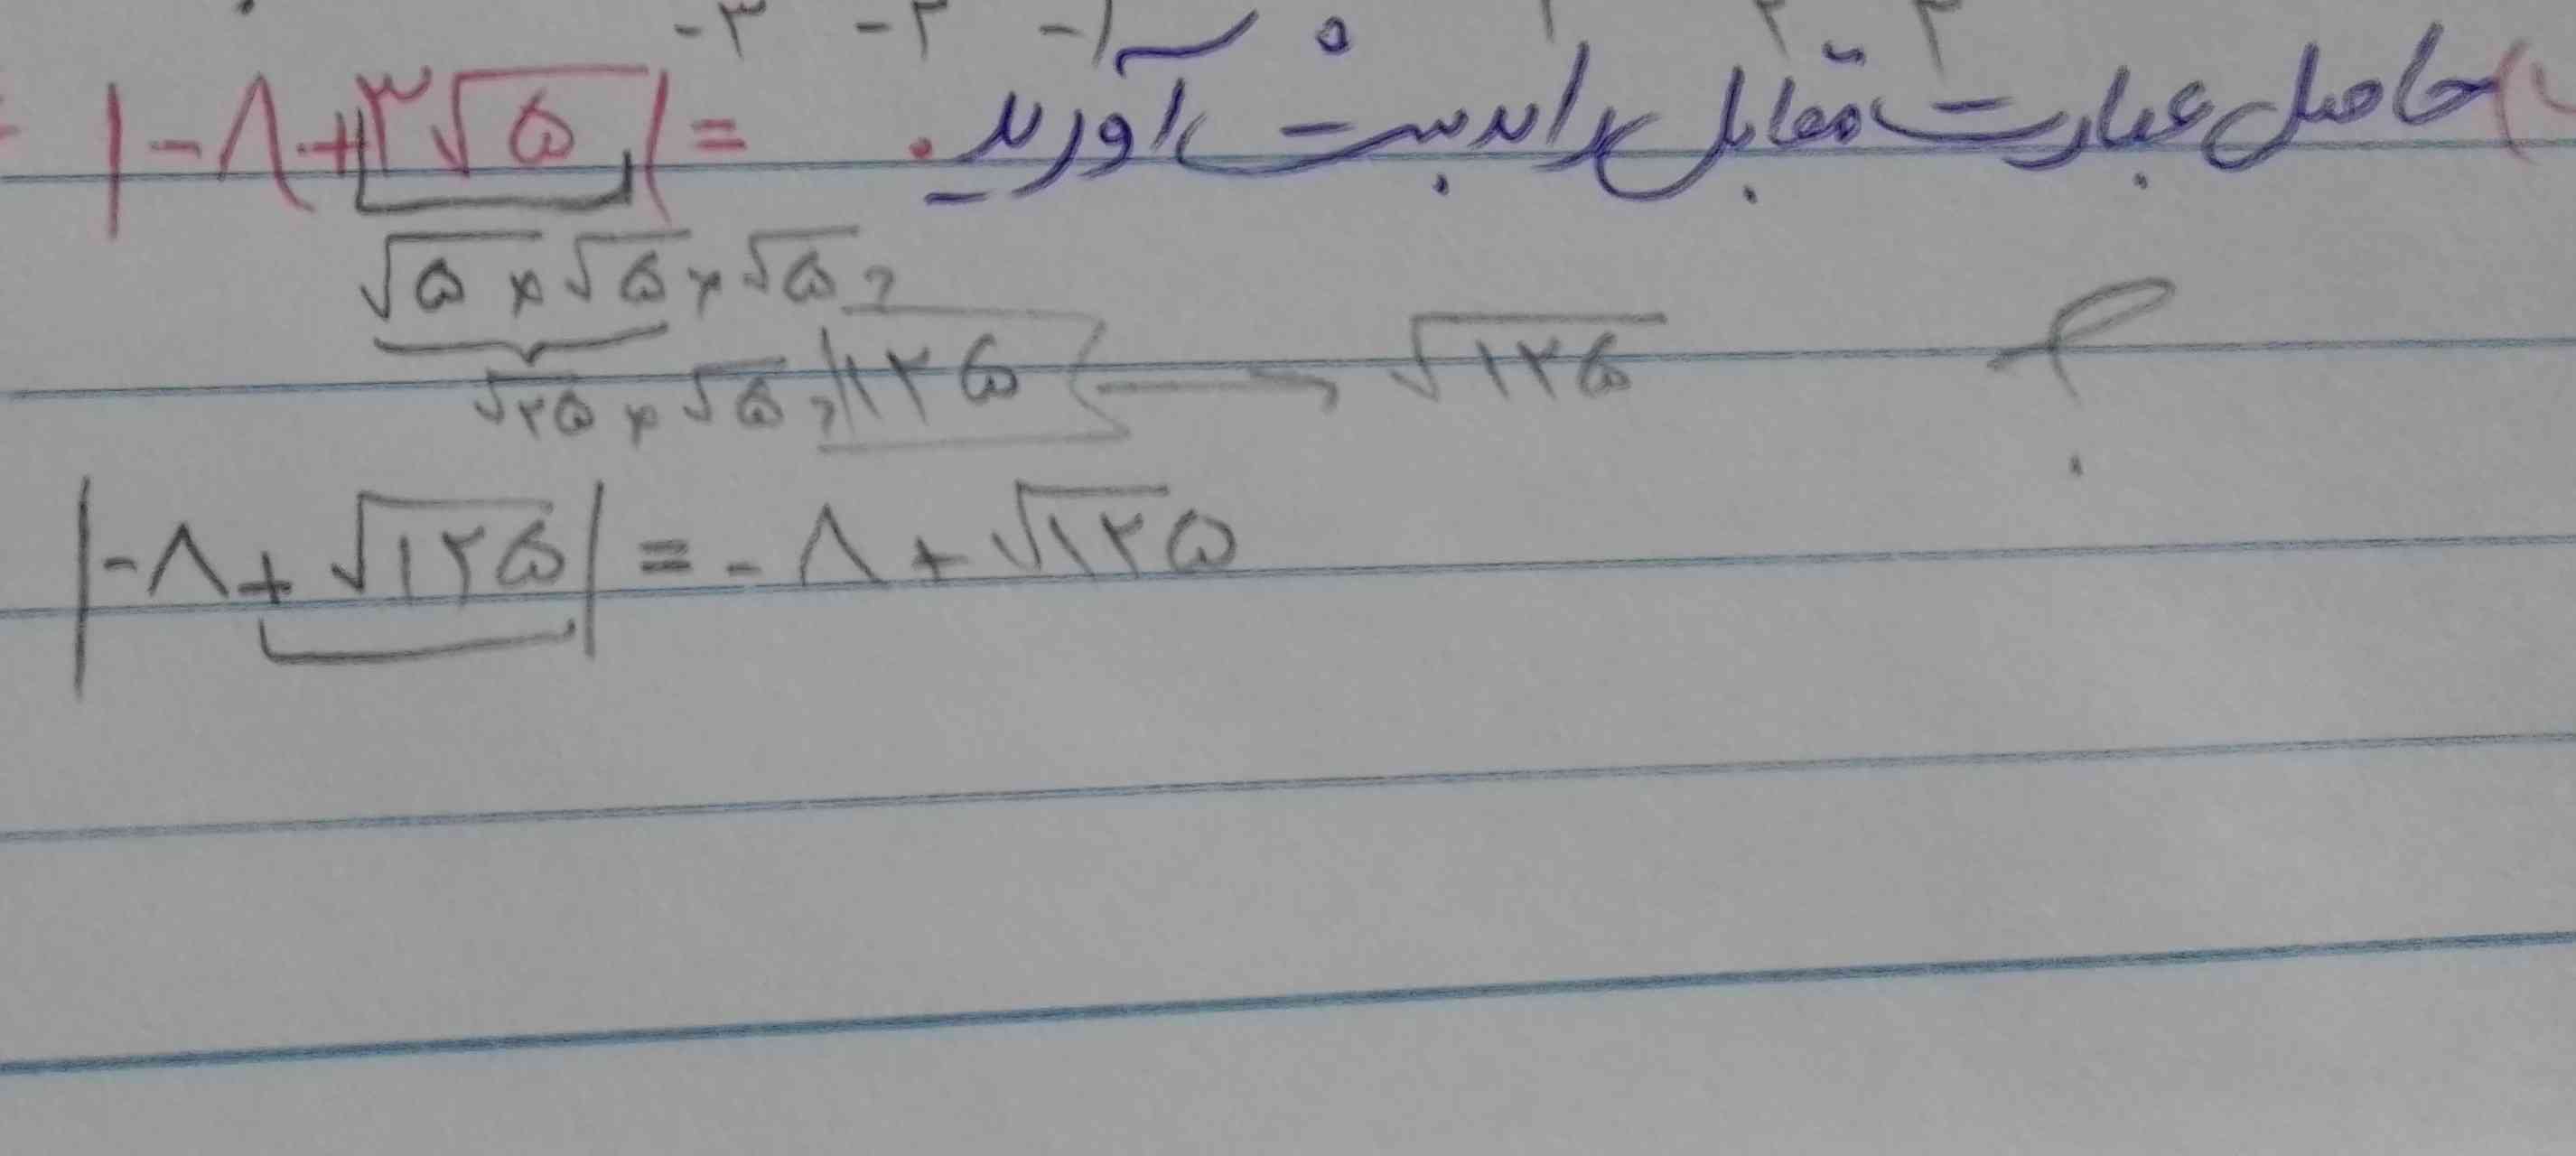 -۳ -۲ -۱ ۰ ۱ ۲ ۳
حاصل عبارت مقابل را بدست آورید. |-۸+۳√۵| =
√۵ × √۵ × √۵ =
√۲۵ × √۵ = ۱۲۵ → √۱۲۵ ؟
|-۸+√۱۲۵| = -۸+√۱۲۵